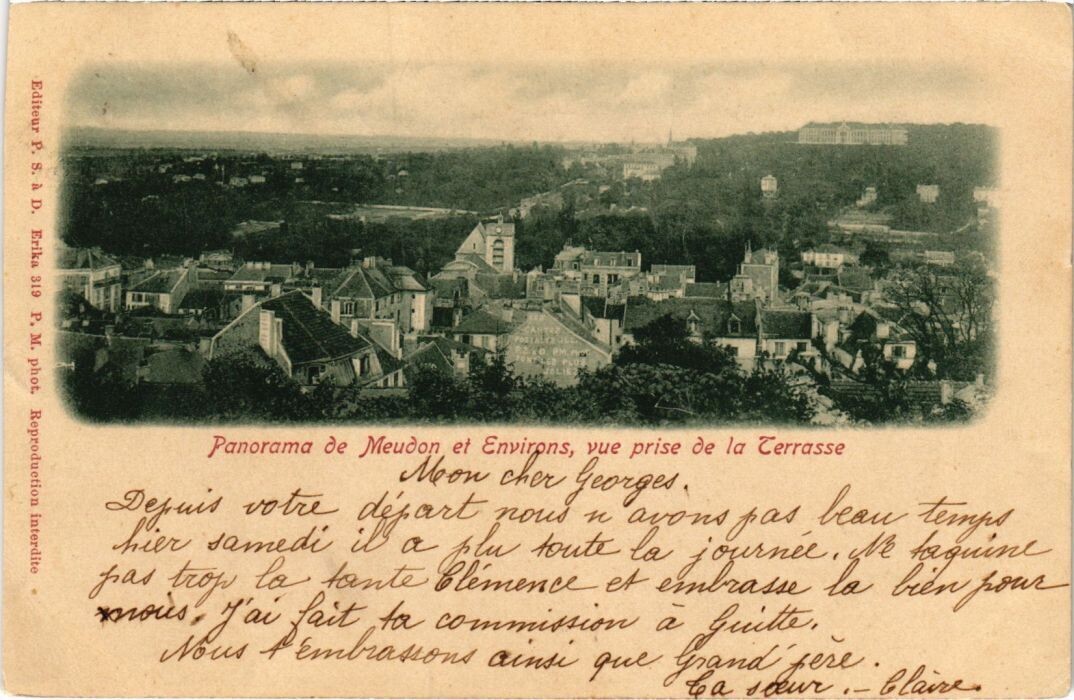 Editeur P. S. à D. Erika 319 P. M. phot. Reproduction interdite
Panorama de Meudon et Environs, vue prise de la Terrasse
Mon cher Georges.
Depuis votre départ nous n avons pas beau temps
hier samedi il a plu toute la journée. Ne taquine
pas trop la tante Clémence et embrasse la bien pour
nous. J'ai fait ta commission à Guitte.
Nous t'embrassons ainsi que Grand'père.
Ta sœur. - Claire.